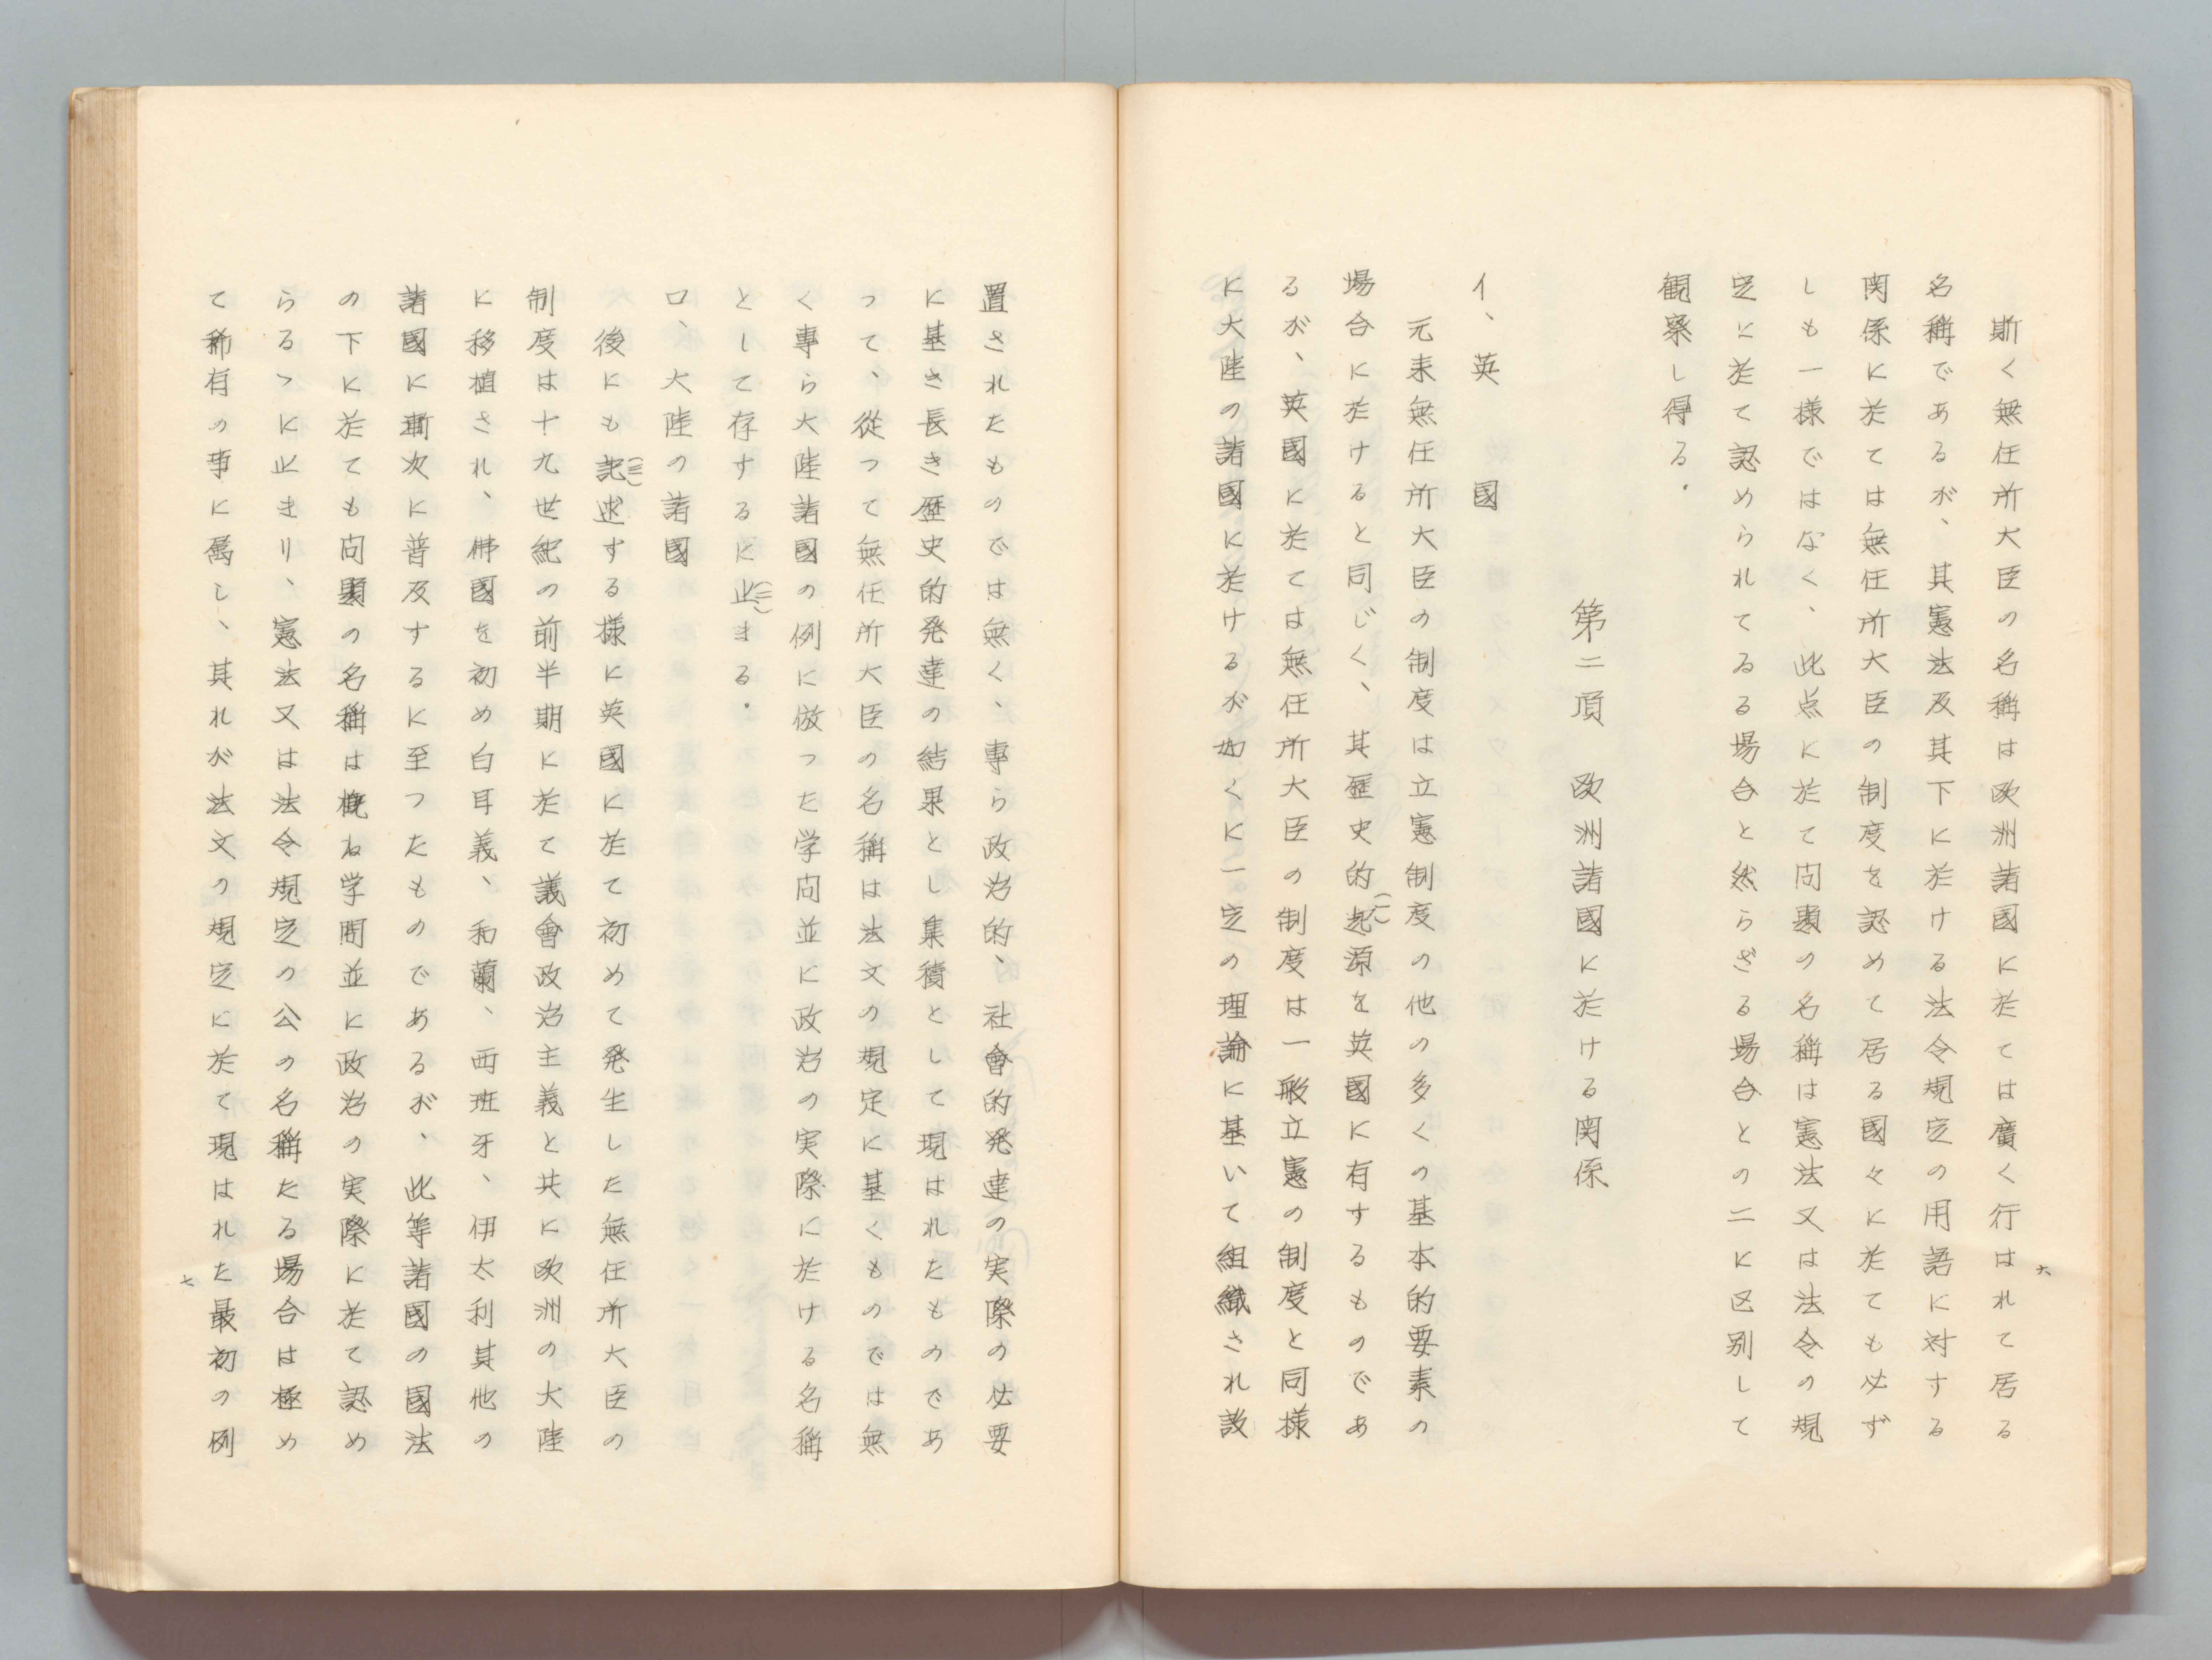 斯く無任所大臣の名稱は欧洲諸國に於ては廣く行はれて居る
名稱であるが、其憲法及其下に於ける法令規定の用語に対する
関係に於ては無任所大臣の制度を認めて居る國々に於ても必ず
しも一様ではなく、此点に於て問題の名稱は憲法又は法令の規
定に於て認められてゐる場合と然らざる場合との二に区別して
観察し得る．
第二項　欧洲諸國に於ける関係
イ、英　　國
元来無任所大臣の制度は立憲制度の他の多くの基本的要素の
場合に於けると同じく、其歴史的起源(一)を英國に有するものであ
るが、英國に於ては無任所大臣の制度は一般立憲の制度と同様
に大陸の諸國に於けるが如くに一定の理論に基いて組織され設
六
置されたものでは無く、專ら政治的、社會的発達の実際の必要
に基き長き歴史的発達の結果とし集積として現はれたものであ
つて、從つて無任所大臣の名稱は法文の規定に基くものでは無
く專ら大陸諸國の例に倣つた学問並に政治の実際に於ける名稱
として存するに止(二)まる．
ロ、大陸の諸國
後にも記(三)述する様に英國に於て初めて発生した無任所大臣の
制度は十九世紀の前半期に於て議會政治主義と共に欧洲の大陸
に移植され、佛國を初め白耳義、和蘭、西班牙、伊太利其他の
諸國に漸次に普及するに至つたものであるが、此等諸國の國法
の下に於ても問題の名稱は概ね学問並に政治の実際に於て認め
らるゝに止まり、憲法又は法令規定の公の名稱たる場合は極め
て稀有の事に属し、其れが法文の規定に於て現はれた最初の例
七